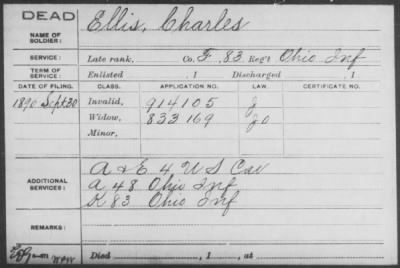 DEAD
NAME OF SOLDIER: Ellis, Charles
SERVICE: Late rank, Co. F. 83 Reg't Ohio Inf
TERM OF SERVICE: Enlisted , 1 Discharged , 1
DATE OF FILING. CLASS. APPLICATION NO. LAW. CERTIFICATE NO.
1890 Sept 30 Invalid, 914105 J
Widow, 833169 JO
Minor,
ADDITIONAL SERVICES: A & E 4 U S Cav
A 48 Ohio Inf
K 83 Ohio Inf
REMARKS:
Died , 1 , at